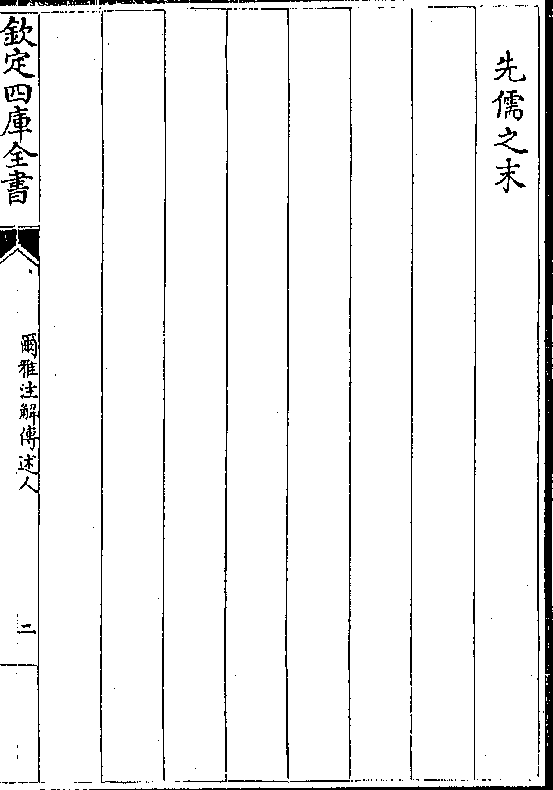 先儒之末
欽定四庫全書
爾雅注解傳述人
二